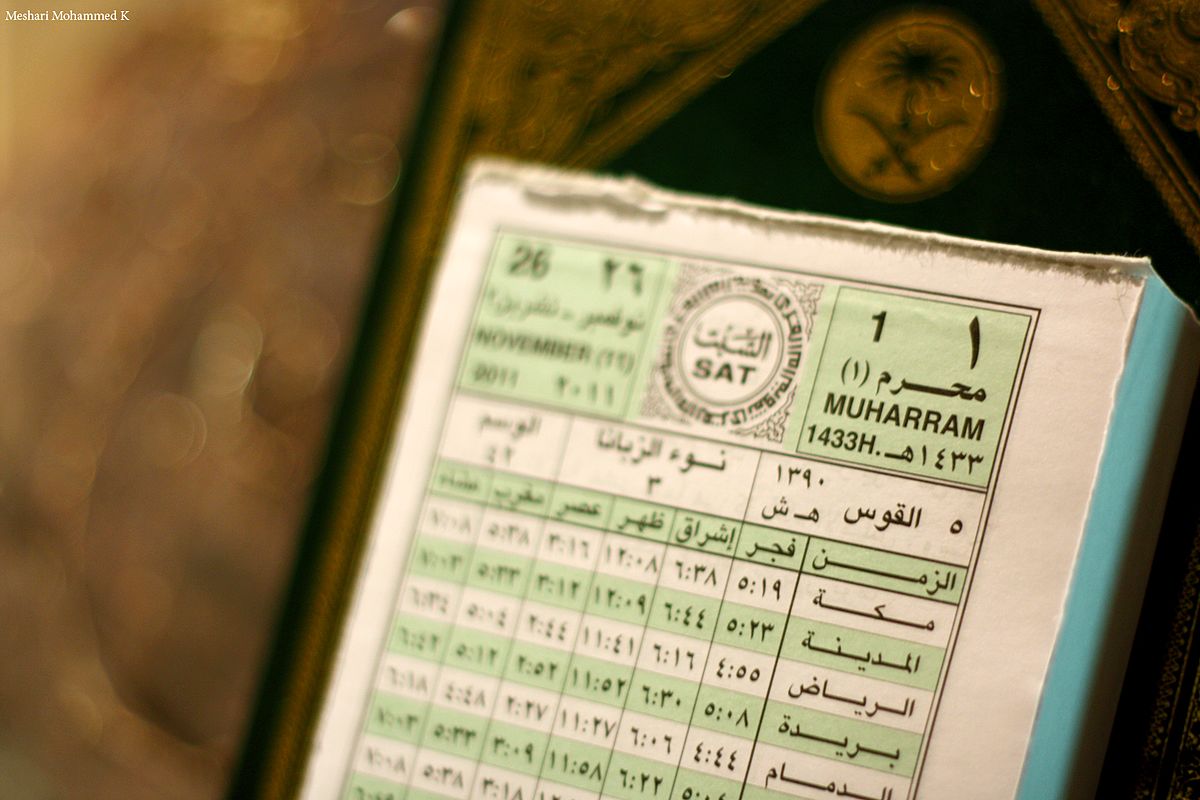 Meshari Mohammed K
١ 1
محرم (١)
MUHARRAM
1433H. ١٤٣٣هـ
السَّبْت
SAT
26 ٢٦
نوفمبر ـ تشرين٢
NOVEMBER (11)
2011 ٢٠١١
٥ القوس ١٣٩٠ هـ ش
نوء الزبانا
٣
الوسم
٤٢
الزمن فجر إشراق ظهر عصر مغرب عشاء
مكة ٥:١٩ ٦:٣٨ ١٢:٠٨ ٣:١٦ ٥:٣٨ ٧:٠٨
المدينة ٥:٢٣ ٦:٤٤ ١٢:٠٩ ٣:١٢ ٥:٣٣ ٧:٠٣
الرياض ٤:٥٥ ٦:١٦ ١١:٤١ ٢:٤٤ ٥:٠٤ ٦:٣٤
بريدة ٥:٠٨ ٦:٣٠ ١١:٥٢ ٢:٥٢ ٥:١٢ ٦:٤٢
الدمام ٤:٤٤ ٦:٠٦ ١١:٢٧ ٢:٢٧ ٤:٤٨ ٦:١٨
٦:٢٢ ١١:٥٨ ٣:٠٩ ٥:٣٣ ٧:٠٣
٣:١٨ ٥:٣٨ ٧:٠٨